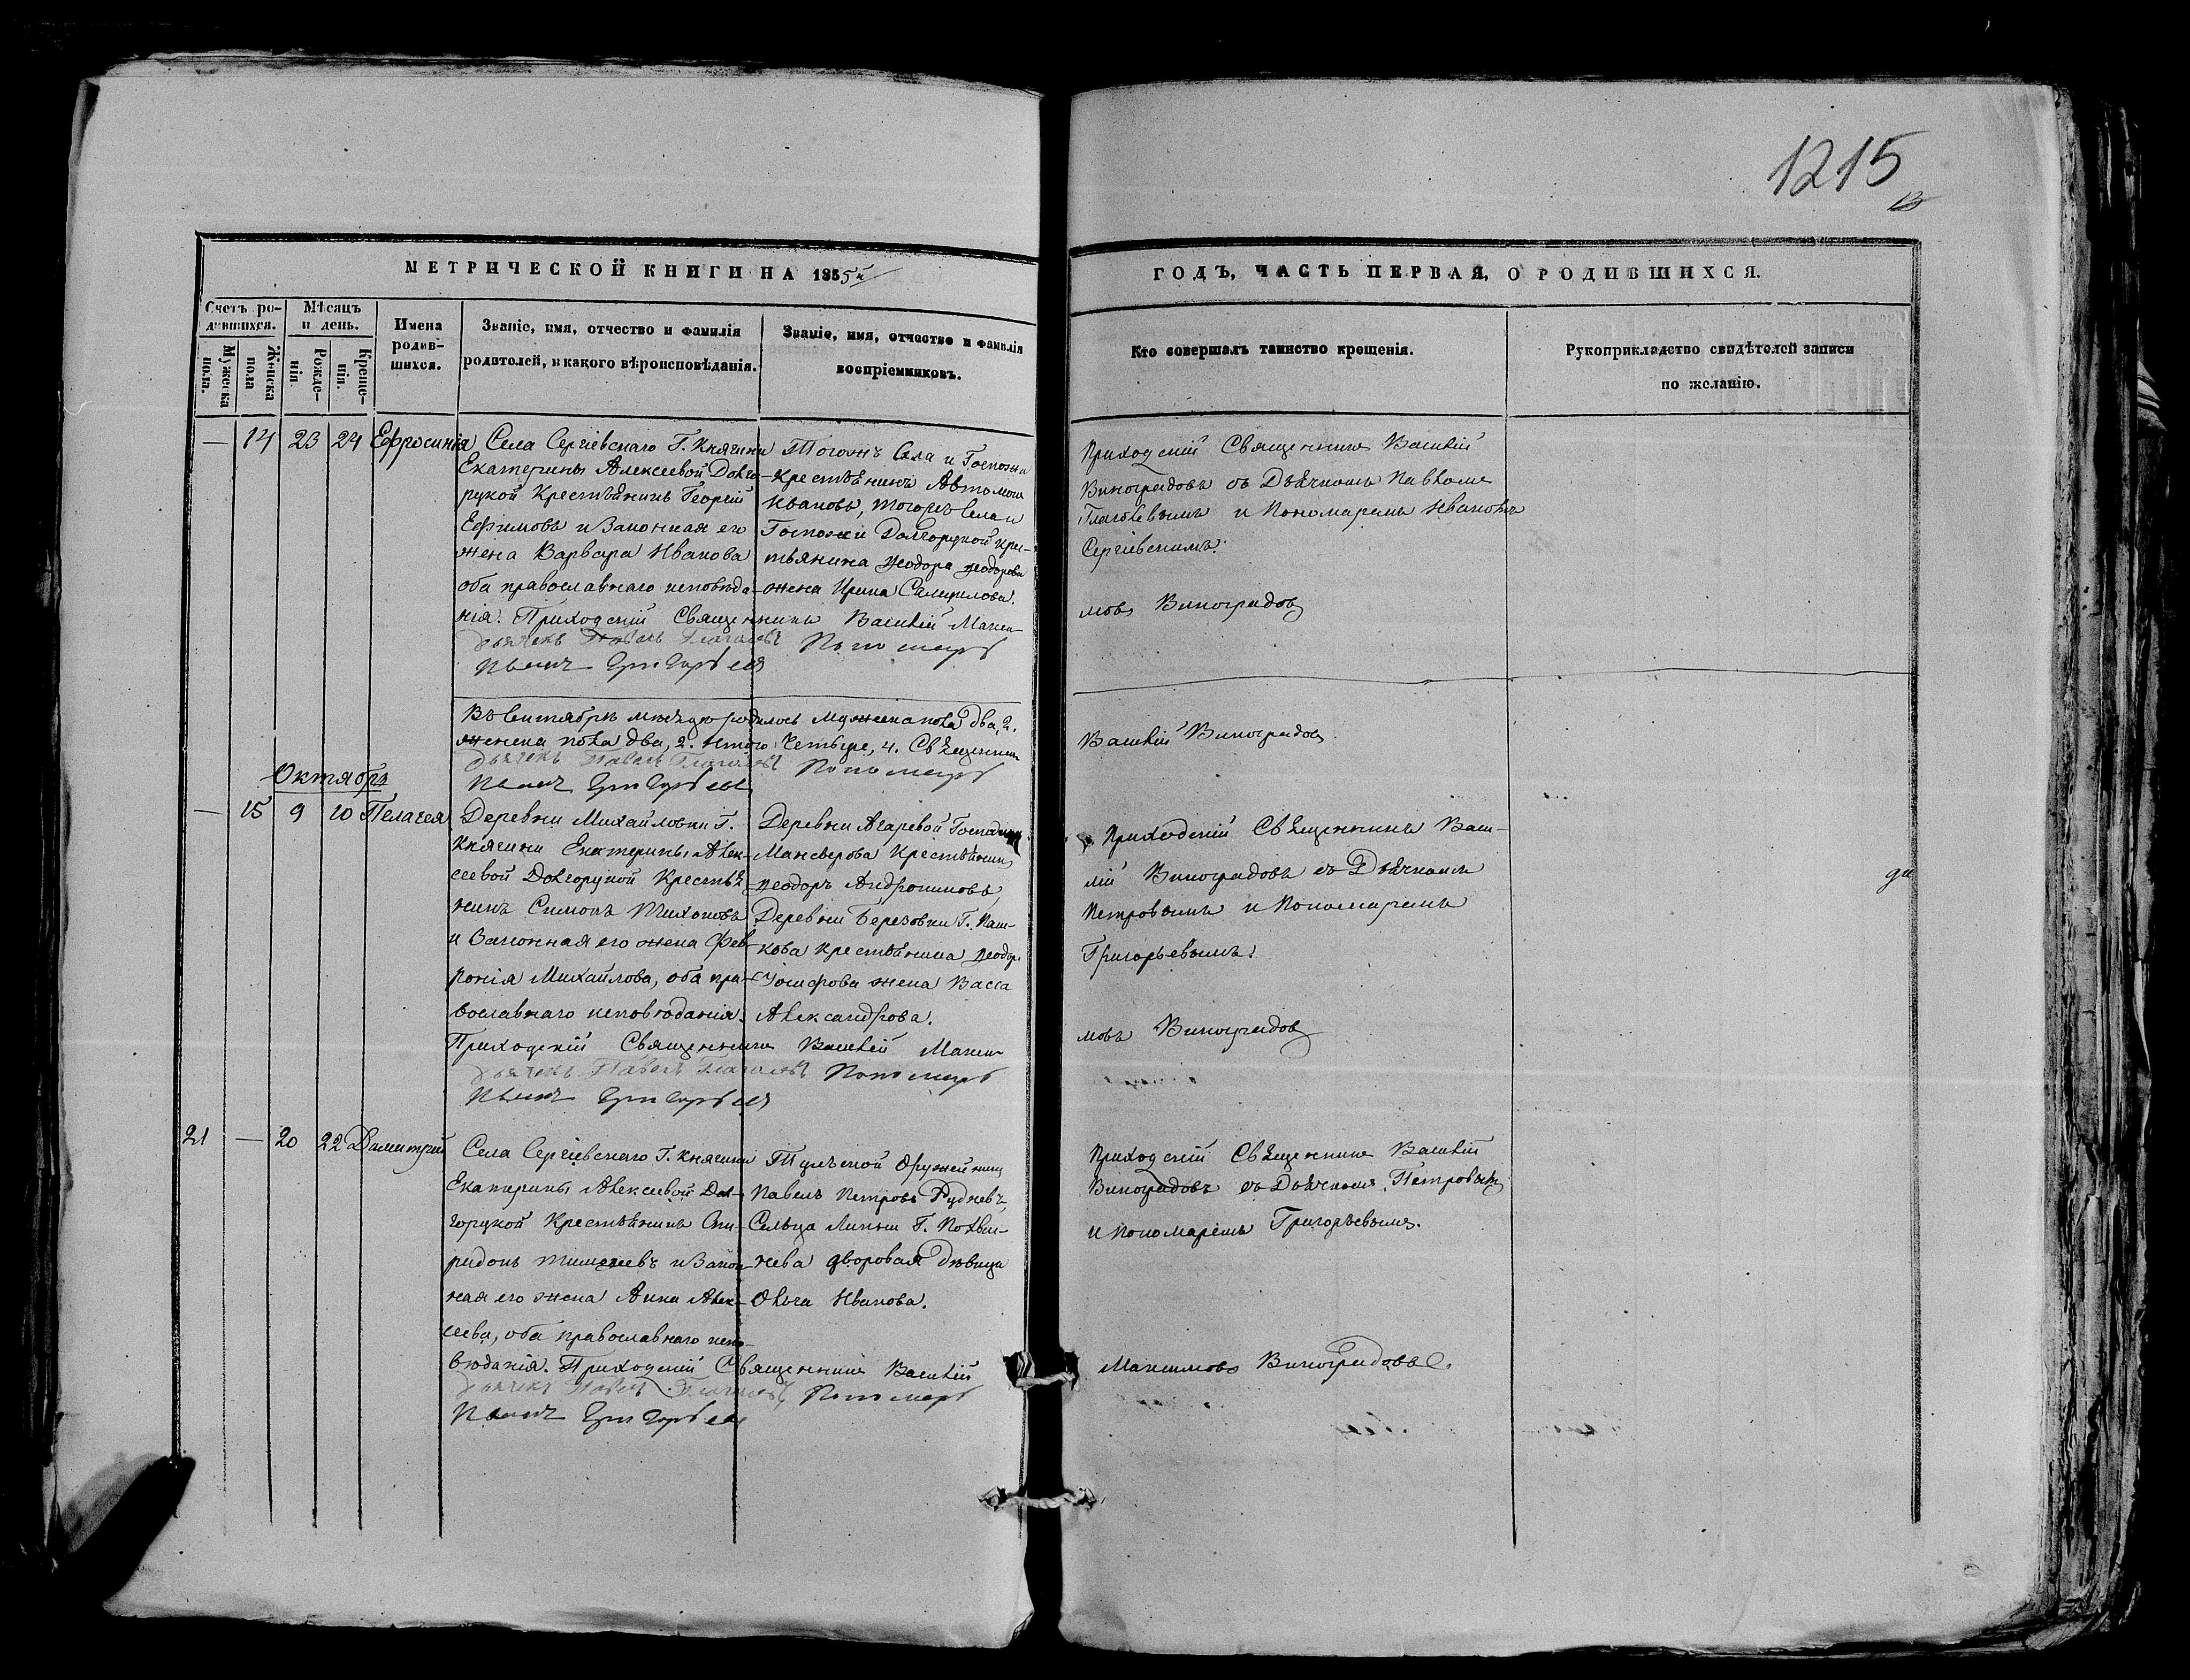 1215
МЕТРИЧЕСКОЙ КНИГИ НА 1855й
ГОДЪ, ЧАСТЬ ПЕРВАЯ, О РОДИВШИХСЯ.
Счетъ ро-
дившихся.
Мужеска
пола.
Женска
пола
Мѣсяцъ
и день.
Рожде-
нія
Креще-
нія.
Имена
родив-
шихся.
Званіе, имя, отчество и фамилія
родителей, и какого вѣроисповѣданія.
Званіе, имя, отчество и фамилія
воспріемниковъ.
Кто совершалъ таинство крещенія.
Рукоприкладство свидѣтелей записи
по желанію.
— 14 23 24 Ефросинія
Села Сергіевскаго Г. Княгини
Екатерины Алексеевой Долго-
рукой Крестьянинъ Георгій
Ефимовъ и Законная его
жена Варвара Иванова
оба православнаго исповѣда-
нія. Приходскій Священникъ Василій Макси-
Дьячекъ Павелъ Глаголевъ Пономарь
Иванъ Григорьевъ
Тогожъ Села и Госпожи
крестьянинъ Автомонъ
Ивановъ, тогожъ Села и
Госпожи Долгорукой кре-
стьянина Ѳеодора Ѳеодорова
жена Ирина Самуилова.
Приходскій Священникъ Василій
Виноградовъ съ Дьячкомъ Павломъ
Глаголевымъ и Пономаремъ Иваномъ
Сергіевскимъ.
мовъ Виноградовъ
Въ Сентябрѣ мѣсяцѣ родилось мужеска пола два, 2.
женска пола два, 2. Итого Четыре, 4. Священникъ
Дьячекъ Павелъ Глаголевъ Пономарь
Иванъ Григорьевъ
Василій Виноградовъ
Октябрь
— 15 9 10 Пелагея
Деревни Михайловки Г.
Княгини Екатерины Алек-
сеевой Долгорукой Крестья-
нинъ Симонъ Тихоновъ
и Законная его жена Фев-
ронія Михайлова, оба пра-
вославнаго исповѣданія.
Приходскій Священникъ Василій Макси-
Дьячекъ Павелъ Глаголевъ Пономарь
Иванъ Григорьевъ
Деревни Агаревой Господина
Мансверова Крестьянинъ
Ѳеодоръ Андрониковъ,
Деревни Березовки Г. Паш-
кова крестьянина Ѳеодора
Іосифова жена Васса
Александрова.
Приходскій Священникъ Васи-
лій Виноградовъ съ Дьячкомъ
Петровымъ и Пономаремъ
Григорьевымъ.
мовъ Виноградовъ
21 — 20 22 Димитрій
Села Сергіевскаго Г. Княгини
Екатерины Алексеевой Дол-
горукой Крестьянинъ Спи-
ридонъ Тимоѳеевъ и Закон-
ная его жена Анна Алек-
сеева, оба православнаго испо-
вѣданія. Приходскій Священникъ Василій
Дьячекъ Павелъ Глаголевъ Пономарь
Иванъ Григорьевъ
Тульской Оружейникъ
Павелъ Петровъ Рудневъ,
Сельца Липки Г. Похви-
нева дворовая дѣвица
Ольга Иванова.
Приходскій Священникъ Василій
Виноградовъ съ Дьячкомъ Петровымъ
и Пономаремъ Григорьевымъ.
Максимовъ Виноградовъ.